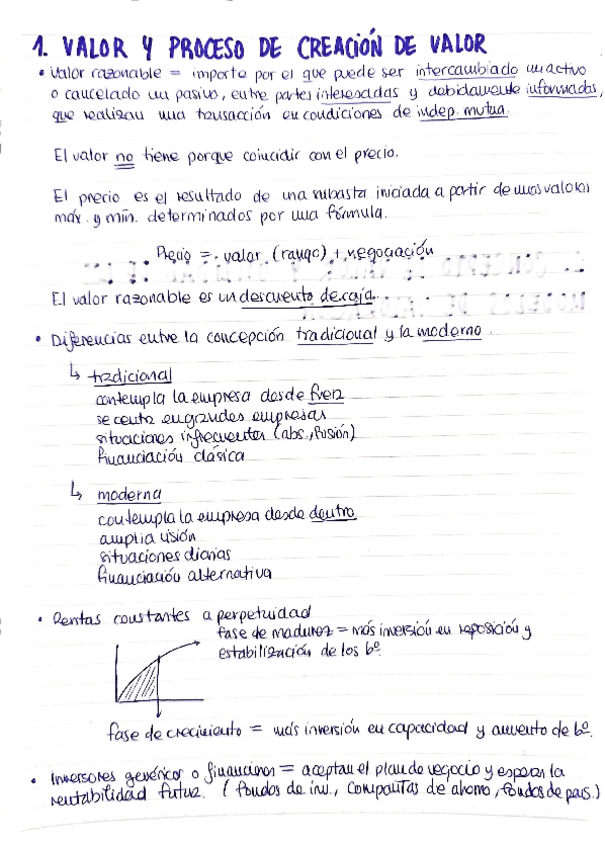 1. VALOR Y PROCESO DE CREACIÓN DE VALOR
• Valor razonable = importe por el que puede ser intercambiado un activo
o cancelado un pasivo, entre partes interesadas y debidamente informadas,
que realizan una transacción en condiciones de indep. mutua.
El valor no tiene porque coincidir con el precio.
El precio es el resultado de una subasta iniciada a partir de unos valores
máx. y mín. determinados por una fórmula.
Precio = valor (rango) + negociación
El valor razonable es un descuento de caja.
• Diferencias entre la concepción tradicional y la moderna.
↳ tradicional
contempla la empresa desde fuera
se centra en grandes empresas
situaciones infrecuentes (abs., fusión)
financiación clásica
↳ moderna
contempla la empresa desde dentro
amplia visión
situaciones diarias
financiación alternativa
• Rentas constantes a perpetuidad
fase de madurez = más inversión en reposición y
estabilización de los bº.
fase de crecimiento = más inversión en capacidad y aumento de bº.
• Inversores genéricos o financieros = aceptan el plan de negocio y esperan la
rentabilidad futura. (fondos de inv., compañías de ahorro, fondos de pens.)